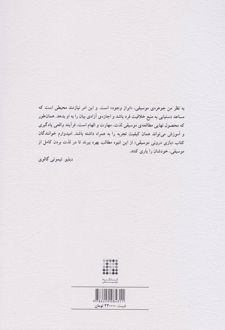 به نظر من جوهره‌ی موسیقی، «ابراز وجود» است. و این امر نیازمند محیطی است که
مساعد دستیابی به منبع خلاقیت فرد باشد و اجازه‌ی آزادی بیان را به او بدهد. همان‌طور
که محصول نهایی مطالعه‌ی موسیقی لذت، مهارت و الهام است، فرآیند واقعی یادگیری
و آموزش می‌تواند همان کیفیت تجربه را به همراه داشته باشد. امیدوارم خوانندگان
کتاب «بازی درونی موسیقی» از این انبوه مطالب بهره ببرند تا در لذت بردن کامل از
موسیقی، خودشان را یاری کنند.
دبلیو تیموتی گالوی
قیمت: تومان